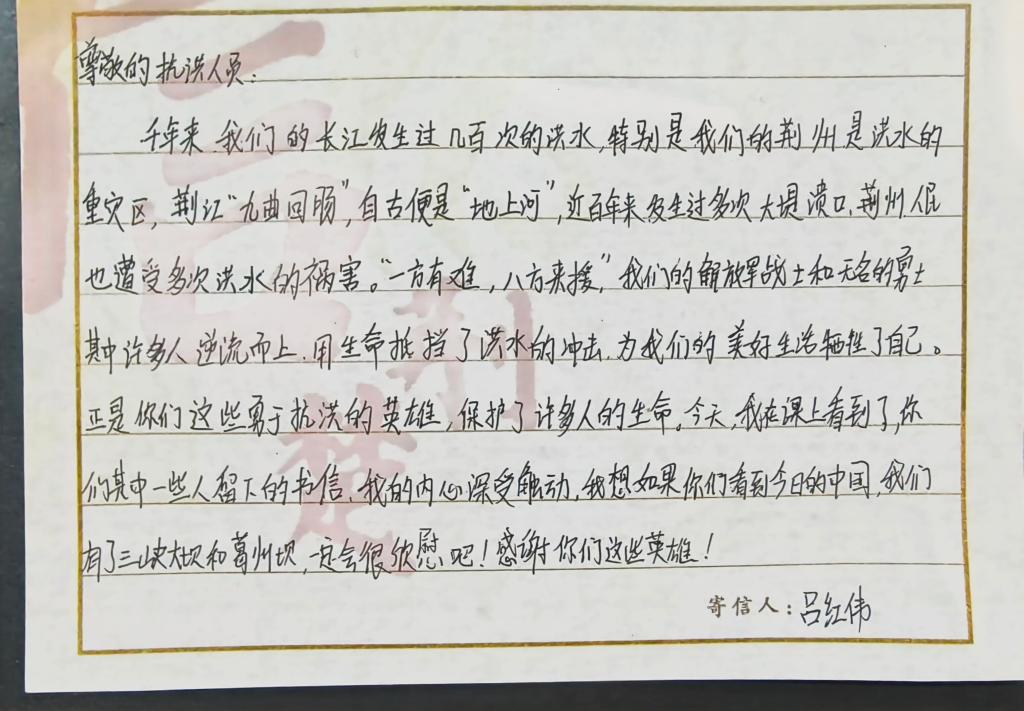 尊敬的抗洪人员:
千年来.我们的长江发生过几百次的洪水,特别是我们的荆州是洪水的
重灾区,荆江“九曲回肠”,自古便是“地上河”,近百年来发生过多次大堤溃口.荆州人民
也遭受多次洪水的祸害。“一方有难,八方来援”,我们的解放军战士和无名的勇士
其中许多人逆流而上.用生命抵挡了洪水的冲击.为我们的美好生活牺牲了自己。
正是你们这些勇于抗洪的英雄,保护了许多人的生命。今天,我在课上看到了,你
们其中一些人留下的书信.我的内心深受触动.我想如果你们看到今日的中国,我们
有了三峡大坝和葛州坝,一定会很欣慰吧!感谢你们这些英雄!
寄信人:吕红伟
信
荆
楚